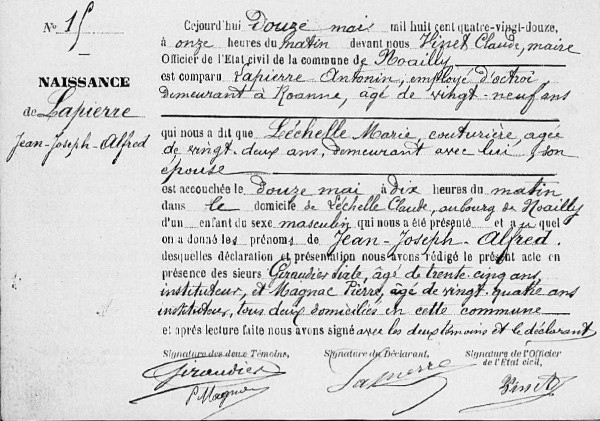 N° 15
NAISSANCE
de Lapierre
Jean-Joseph-Alfred
Cejourd'hui Douze mai mil huit cent quatre-vingt-douze,
à onze heures du matin devant nous Vinet Claude, maire
Officier de l'Etat civil de la commune de Noailly
est comparu Lapierre Antonin, employé d'octroi,
demeurant à Roanne, âgé de vingt-neuf ans
qui nous a dit que Léchelle Marie, couturière, agée
de vingt-deux ans, demeurant avec lui, son
épouse
est accouchée le Douze mai à Dix heures du matin
dans le domicile de Léchelle Claude, au bourg de Noailly
d'un enfant du sexe masculin qui nous a été présenté et a quel
on a donné les prénoms de Jean-Joseph-Alfred.
desquelles déclaration et présentation nous avons rédigé le présent acte en
présence des sieurs Giraudier, âgé de trente-cinq ans,
instituteur, et Magnac Pierre, âgé de vingt-quatre ans
instituteur, tous deux domiciliés en cette commune
et après lecture faite nous avons signé avec les deux témoins et le déclarant
Signature des deux Témoins, Signature du Déclarant, Signature de l'Officier
de l'Etat civil,
Giraudier Lapierre Vinet
P. Magnac